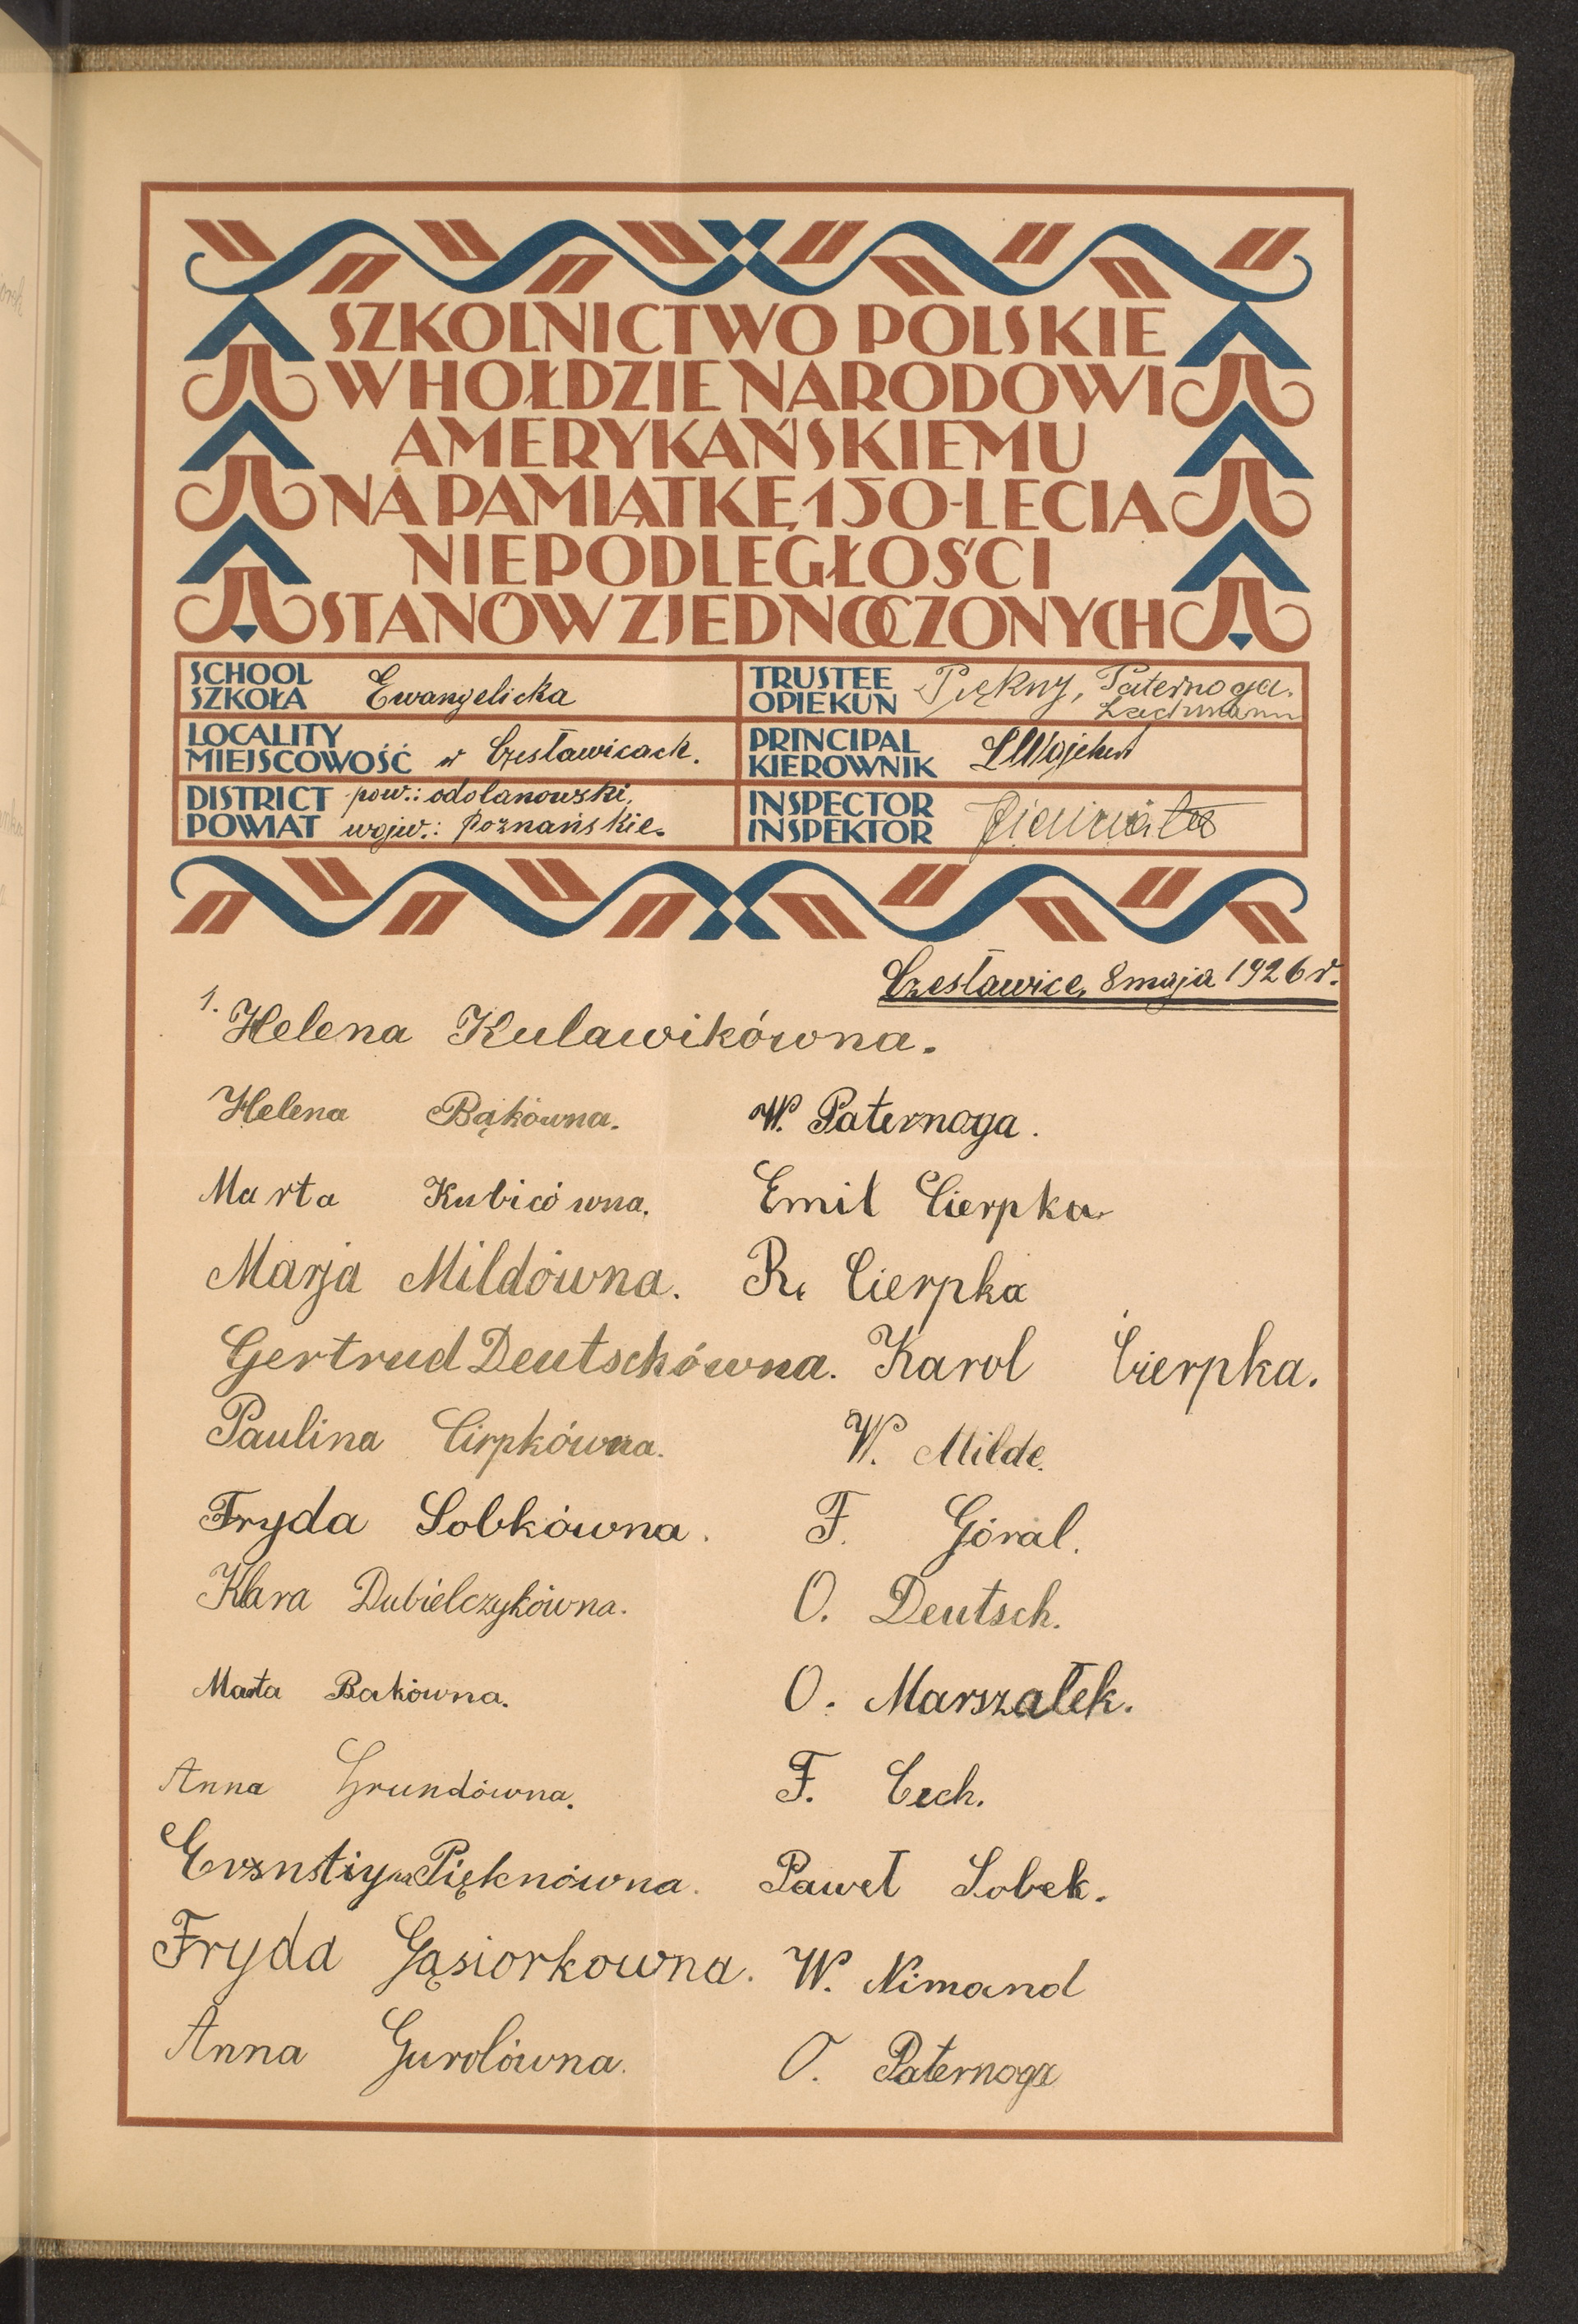 SZKOLNICTWO POLSKIE
W HOŁDZIE NARODOWI
AMERYKAŃSKIEMU
NA PAMIĄTKĘ 150-LECIA
NIEPODLEGŁOŚCI
STANÓW ZJEDNOCZONYCH
SCHOOL
SZKOŁA
Ewangelicka
TRUSTEE
OPIEKUN
Piękny, Paternoga.
LOCALITY
MIEJSCOWOŚĆ
w Czesławicach.
PRINCIPAL
KIEROWNIK
DISTRICT
POWIAT
pow.: odolanowski,
wojw.: poznańskie.
INSPECTOR
INSPEKTOR
Czesławice, 8 maja 1926 r.
1. Helena Kulawikówna.
Helena Bąkówna. W. Paternoga.
Marta Kubicówna. Emil Cierpka
Marja Mildówna. R. Cierpka
Gertrud Deutschówna. Karol Cierpka.
Paulina Cirpkówna. W. Milde.
Fryda Sobkówna. F. Góral.
Klara Dubielczykówna. O. Deutsch.
Marta Bakówna. O. Marszałek.
Anna Grundówna. F. Cech.
Pięknówna. Paweł Sobek.
Fryda Gąsiorkowna. W. Nimand
Anna Gurolówna. O. Paternoga